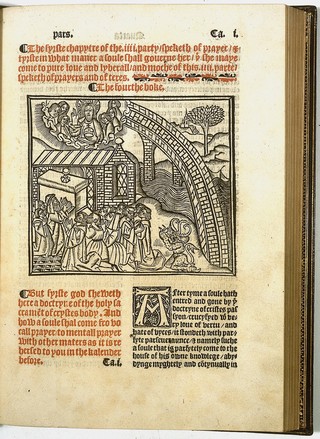 pars. Ca. i.
¶The fyrste chapytre of the .iiii. party/speketh of prayer/&
fyrste in what maner a soule shall gouerne her/ ẏ she maye
come to pure loue and lyberall/and moche of this .iiii. parte/
speketh of prayers and of teres.
¶The fourthe boke.
¶But fyrste god sheweth
here a doctryne of the holy sa
crament of crystes body. And
how a soule shal come fro vo
call prayer to mentall prayer
with other maters as it is re
hersed to you in the kalender
before. Ca.i.
After tyme a soule hath
entred and gone by ẏ
doctryne of cristes pas
syon/crucyfyed
rey loue of vertu/ and
hate of vyces/
a soule that is parfytely come to the
house of his owne knowlege/ aby
dynge myghtely and contynually in